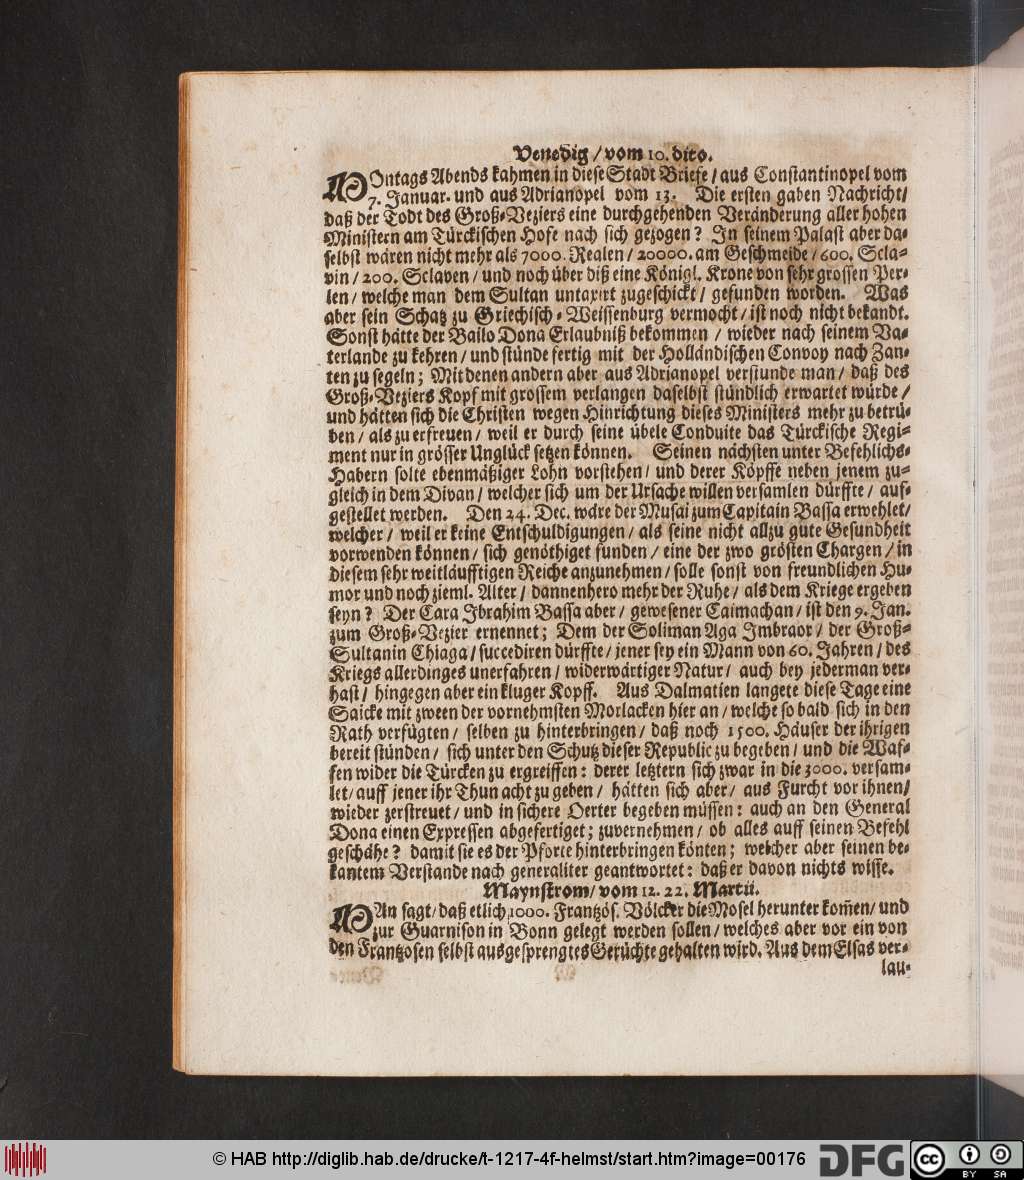 Venedig / vom 10. dito.
MOntags Abends kahmen in diese Stadt Briefe / aus Constantinopel vom
7. Januar. und aus Adrianopel vom 13. Die ersten gaben Nachricht /
daß der Todt des Groß-Veziers eine durchgehenden Veränderung aller hohen
Ministern am Türckischen Hofe nach sich gezogen? In seinem Palast aber da-
selbst wären nicht mehr als 7000. Realen / 20000. am Geschmeide / 600. Scla-
vin / 200. Sclaven / und noch über diß eine Königl. Krone von sehr grossen Per-
len / welche man dem Sultan untaxirt zugeschickt / gefunden worden. Was
aber sein Schatz zu Griechisch-Weissenburg vermocht / ist noch nicht bekandt.
Sonst hätte der Bailo Dona Erlaubniß bekommen / wieder nach seinem Va-
terlande zu kehren / und stünde fertig mit der Holländischen Convoy nach Zan-
ten zu segeln; Mit denen andern aber aus Adrianopel verstunde man / daß des
Groß-Veziers Kopf mit grossem verlangen daselbst stündlich erwartet würde /
und hätten sich die Christen wegen Hinrichtung dieses Ministers mehr zu betrü-
ben / als zu erfreuen / weil er durch seine übele Conduite das Türckische Regi-
ment nur in grösser Unglück setzen können. Seinen nächsten unter Befehlichs-
Habern solte ebenmäßiger Lohn vorstehen / und derer Köpffe neben jenem zu-
gleich in dem Divan / welcher sich um der Ursache willen versamlen dürffte / auf-
gestellet werden. Den 24. Dec. wäre der Musai zum Capitain Bassa erwehlet /
welcher / weil er keine Entschuldigungen / als seine nicht allzu gute Gesundheit
vorwenden können / sich genöthiget funden / eine der zwo grösten Chargen / in
diesem sehr weitläufftigen Reiche anzunehmen / solle sonst von freundlichen Hu-
mor und noch zieml. Alter / dannenhero mehr der Ruhe / als dem Kriege ergeben
seyn? Der Cara Ibrahim Bassa aber / gewesener Caimachan / ist den 9. Jan.
zum Groß-Vezier ernennet; Dem der Soliman Aga Imbraor / der Groß-
Sultanin Chiaga / succediren dürffte / jener sey ein Mann von 60. Jahren / des
Kriegs allerdinges unerfahren / widerwärtiger Natur / auch bey jederman ver-
hast / hingegen aber ein kluger Kopff. Aus Dalmatien langete diese Tage eine
Saicke mit zween der vornehmsten Morlacken hier an / welche so bald sich in den
Rath verfügten / selben zu hinterbringen / daß noch 1500. Häuser der ihrigen
bereit stünden / sich unter den Schutz dieser Republic zu begeben / und die Waf-
fen wider die Türcken zu ergreiffen: derer letztern sich zwar in die 3000. versam-
let / auff jener ihr Thun acht zu geben / hätten sich aber / aus Furcht vor ihnen /
wieder zerstreuet / und in sichere Oerter begeben müssen: auch an den General
Dona einen Expressen abgefertiget; zuvernehmen / ob alles auff seinen Befehl
geschähe? damit sie es der Pforte hinterbringen könten; welcher aber seinen be-
kantem Verstande nach generaliter geantwortet: daß er davon nichts wisse.
Maynstrom / vom 12. 22. Martii.
MAn sagt / daß etlich 1000. Frantzös. Völcker die Mosel herunter kom̃en / und
zur Guarnison in Bonn gelegt werden sollen / welches aber vor ein von
den Frantzosen selbst ausgesprengtes Gerüchte gehalten wird. Aus dem Elsas ver-
lau-
© HAB http://diglib.hab.de/drucke/t-1217-4f-helmst/start.htm?image=00176
DFG
cc
BY SA